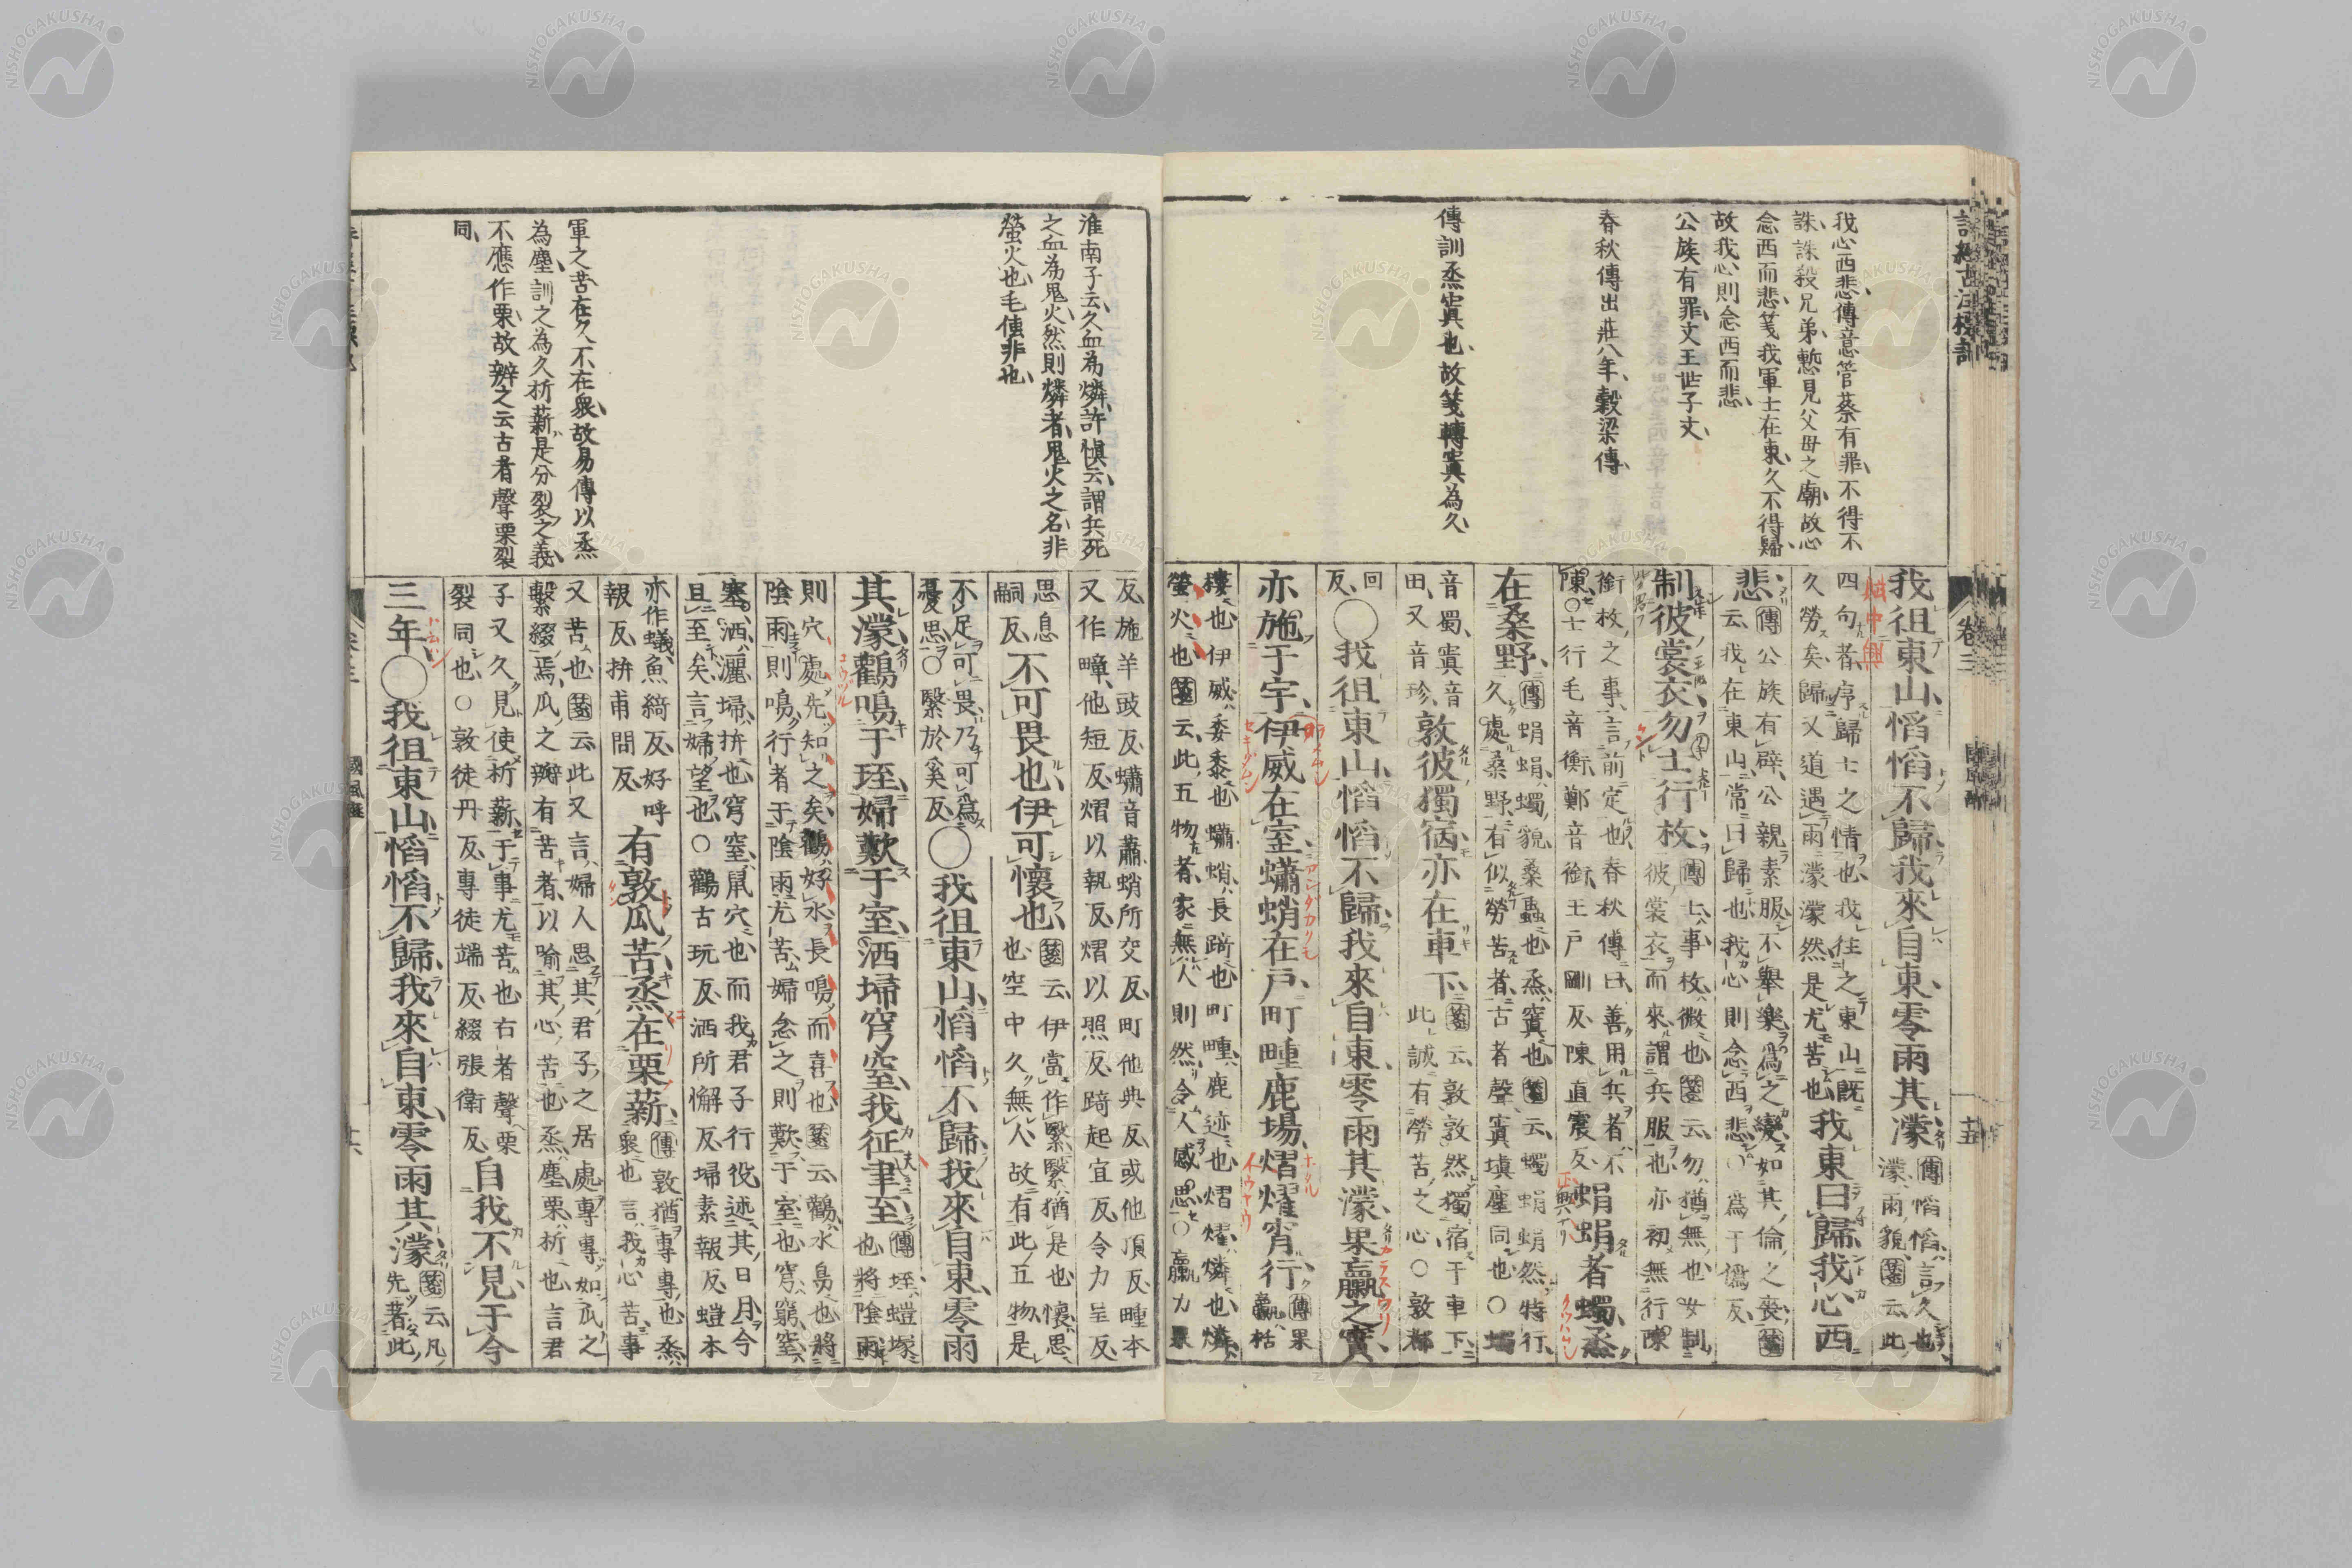 我心西悲傳意管蔡有罪不得不
誅誅殺兄弟慙見父母之廟故心
念西而悲箋我軍士在東久不得歸
故我心則念西而悲
公族有罪文王世子文
春秋傳出莊八年穀梁傳
傳訓烝寘也故箋轉寘為久
我徂東山慆慆不歸我來自東零雨其濛傳慆慆言久也濛雨貌箋云此
四句者序歸士之情也我往之東山既久勞矣歸又道遇雨濛濛然是尤苦也我東曰歸我心西
悲傳公族有辟公親素服不舉樂爲之變如其倫之喪箋云我在東山常曰歸也我心則念西而悲○爲于僞反
制彼裳衣勿士行枚傳士事枚微也箋云勿猶無也女制彼裳衣而來謂兵服也亦初無行陳
銜枚之事言前定也春秋傳曰善用兵者不陳○士行毛音衡鄭音銜王戸剛反陳直震反蜎蜎者蠋烝
在桑野傳蜎蜎蠋貌桑蟲也烝寘也箋云蠋蜎蜎然特行久處桑野有似勞苦者古者聲寘塡塵同也○蠋
音蜀寘音田又音珍敦彼獨宿亦在車下箋云敦敦然獨宿于車下此誠有勞苦之心○敦都
回反○我徂東山慆慆不歸我來自東零雨其濛果臝之實
亦施于宇伊威在室蠨蛸在戸町畽鹿場熠燿宵行傳果臝栝
樓也伊威委黍也蠨蛸長踦也町畽鹿迹也熠燿燐也燐螢火也箋云此五物者家無人則然令人感思○臝力果
卷三
十五
淮南子云久血為燐許愼云謂兵死
之血為鬼火然則燐者鬼火之名非
螢火也毛傳非也
軍之苦在久不在衆故易傳以烝
為塵訓之為久析薪是分裂之義
不應作栗故辨之云古者聲栗裂
同
反施羊豉反蠨音蕭蛸所交反町他典反或他頂反畽本又作疃他短反熠以執反燿以照反踦起宜反令力呈反
思息嗣反不可畏也伊可懷也箋云伊當作繄繄猶是也懷思也空中久無人故有此五物是
不足可畏乃可爲憂思○繄於奚反○我徂東山慆慆不歸我來自東零雨
其濛鸛鳴于垤婦歎于室洒埽穹窒我征聿至傳垤螘塚也將陰雨
則穴處先知之矣鸛好水長鳴而喜也箋云鸛水鳥也將陰雨則鳴行者于陰雨尤苦婦念之則歎于室也穹窮窒
塞洒灑埽拚也穹窒鼠穴也而我君子行役述其日月今且至矣言婦望也○鸛古玩反洒所懈反埽素報反螘本
亦作蟻魚綺反好呼報反拚甫問反有敦瓜苦烝在栗薪傳敦猶專專也烝衆也言我心苦事
又苦也箋云此又言婦人思其君子之居處專專如瓜之繫綴焉瓜之瓣有苦者以喻其心苦也烝塵栗析也言君
子又久見使析薪于事尤苦也古者聲栗裂同也○敦徒丹反專徒端反綴張衛反自我不見于今
三年○我徂東山慆慆不歸我來自東零雨其濛箋云凡先著此
NISHOGAKUSHA